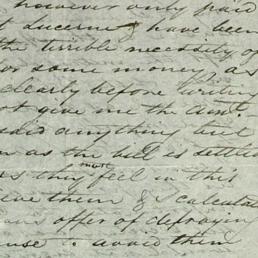 however only paid
at Lucerne & have been
the terrible necessity of
for some money, as
clearly before writing
not give me the amt.
said anything but
as the bill is settled
must
as they feel in this
them & calculate
offer of defraying
avoid them